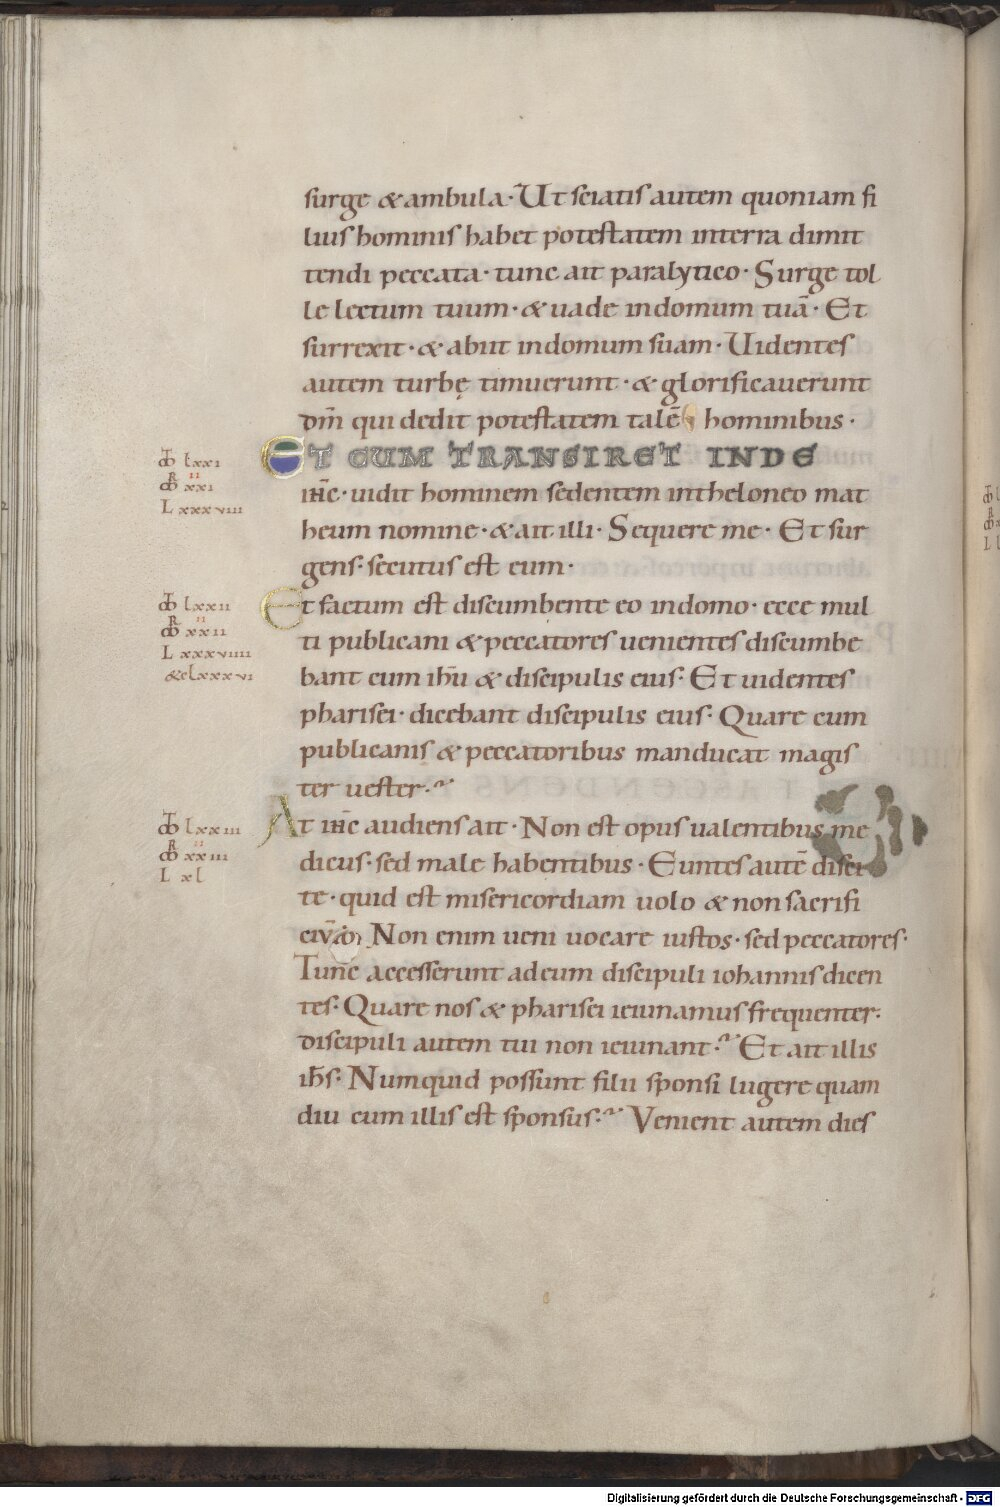 surge & ambula· Ut sciatis autem quoniam fi
lius hominis habet potestatem interra dimit
tendi peccata· tunc ait paralytico· Surge tol
le lectum tuum· & uade indomum tuā· Et
surrexit· & abiit indomum suam· Uidentes
autem turbę timuerunt· & glorificauerunt
dm̄ qui dedit potestatem talē hominibus·
ET CUM TRANSIRET INDE
ih̄c· uidit hominem sedentem intheloneo mat
heum nomine· & ait illi· Sequere me· Et sur
gens· secutus est eum·
Et factum est discumbente eo indomo· ecce mul
ti publicani & peccatores uenientes discumbe
bant cum ih̄u & discipulis eius· Et uidentes
pharisei· dicebant discipulis eius· Quare cum
publicanis & peccatoribus manducat magis
ter uester·
At ih̄c audiens ait· Non est opus ualentibus me
dicus· sed male habentibus· Euntes autē disci
te· quid est misericordiam uolo & non sacrifi
Non enim ueni uocare iustos· sed peccatores·
Tunc accesserunt adeum discipuli iohannis dicen
tes· Quare nos & pharisei ieiunamus frequenter·
discipuli autem tui non ieiunant· Et ait illis
ih̄s· Numquid possunt filii sponsi lugere quam
diu cum illis est sponsus· Venient autem dies
lxxi
II
xxi
L xxxviii
lxxii
II
xxii
L xxxviiii
& clxxxvi
lxxiii
II
xxiii
L xl
Digitalisierung gefördert durch die Deutsche Forschungsgemeinschaft - DFG